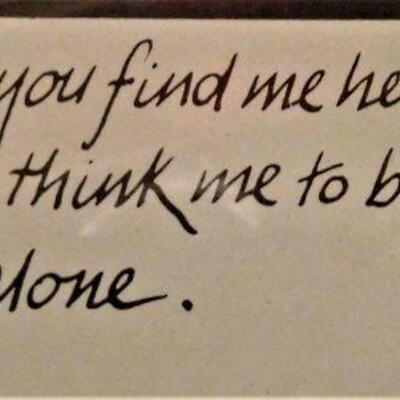 you find me he
think me to b
lone.